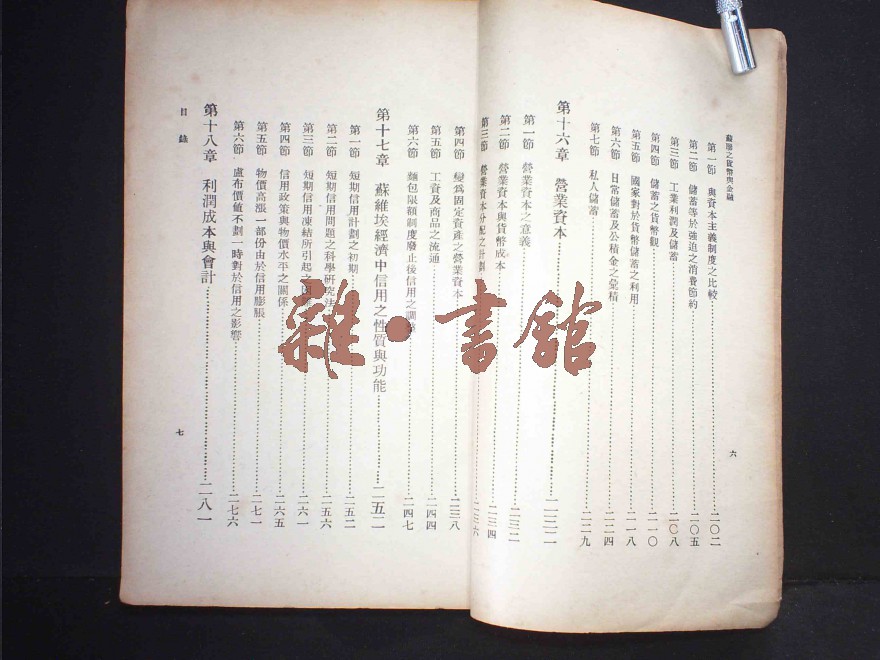 蘇聯之貨幣與金融
第一節 與資本主義制度之比較……二〇二
第二節 儲蓄等於強迫之消費節約……二〇五
第三節 工業利潤及儲蓄……二〇八
第四節 儲蓄之貨幣觀……二一〇
第五節 國家對於貨幣儲蓄之利用……二一八
第六節 日常儲蓄及公積金之彙積……二二四
第七節 私人儲蓄……二二九
第十六章 營業資本……二三二
第一節 營業資本之意義……二三二
第二節 營業資本與貨幣成本……二三四
第三節 營業資本分配之計劃……二三六
六
第四節 變為固定資產之營業資本……二三八
第五節 工資及商品之流通……二四四
第六節 麵包限額制度廢止後信用之調……二四七
第十七章 蘇維埃經濟中信用之性質與功能……二五二
第一節 短期信用計劃之初期……二五二
第二節 短期信用問題之科學研究法……二五六
第三節 短期信用凍結所引起之困……二六一
第四節 信用政策與物價水平之關係……二六五
第五節 物價高漲一部份由於信用膨脹……二七一
第六節 盧布價值不劃一時對於信用之影響……二七六
第十八章 利潤成本與會計……二八一
目錄
七
雜·書館